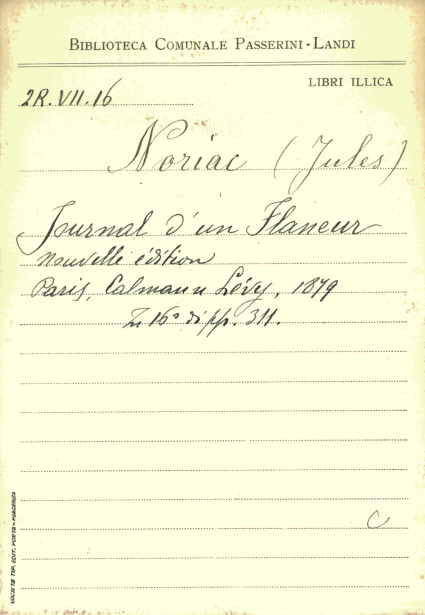 BIBLIOTECA COMUNALE PASSERINI-LANDI
LIBRI ILLICA
2R.VII.16
Noriac (Jules)
Journal d'un Flaneur
nouvelle édition
Paris, Calmann Lévy, 1879
In 16° di pp. 311.
C
SOCIETÀ TIP. EDIT. PORTA-PIACENZA